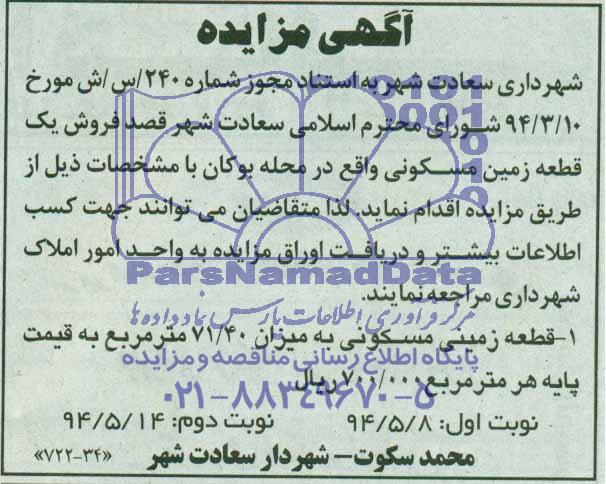 آگهی مزایده
شهرداری سعادت شهر به استناد مجوز شماره ۲۴۰/س/ش مورخ
۹۴/۳/۱۰ شورای محترم اسلامی سعادت شهر قصد فروش یک
قطعه زمین مسکونی واقع در محله بوکان با مشخصات ذیل از
طریق مزایده اقدام نماید. لذا متقاضیان می توانند جهت کسب
اطلاعات بیشتر و دریافت اوراق مزایده به واحد امور املاک
ParsNamadData
شهرداری مراجعه نمایند.
مرکز فرآوری اطلاعات پارس نماد داده ها
۱-قطعه زمینی مسکونی به میزان ۷۱/۴۰ مترمربع به قیمت
پایگاه اطلاع رسانی مناقصه و مزایده
پایه هر مترمربع ۷۰۰/۰۰۰ ریال
۰۲۱-۸۸۳۴۹۶۷۰-۵
نوبت اول: ۹۴/۵/۸ نوبت دوم: ۹۴/۵/۱۴
محمد سکوت- شهردار سعادت شهر «۷۲۲-۳۴»